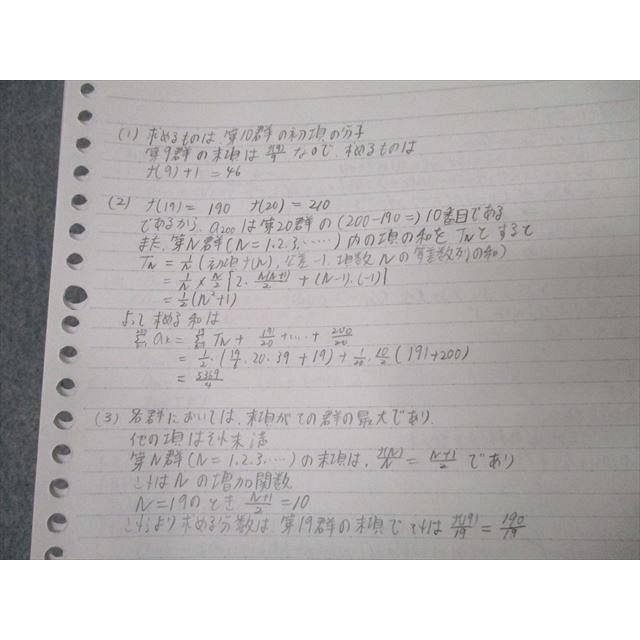 (1) 求めるものは第10群の初項の分子
第9群の末項は f(9)/9 なので 求めるものは
f(9)+1 = 46
(2) f(19) = 190 f(20) = 210
であるから a200 は第20群の (200-190=) 10番目である
また、第N群(N=1.2.3.……)内の項の和を TN とすると
TN = 1/N (初項 f(N), 公差 -1. 項数 N の等差数列の和)
= 1/N × N/2 {2・N(N+1)/2 + (N-1)・(-1)}
= 1/2(N²+1)
よって求める和は
Σ ak = Σ TN + 191/20 +…+ 200/20
= 1/2・(19/6・20・39 + 19) + 1/20・10/2 (191+200)
= 5369/4
(3) 各群においては、末項がその群の最大であり
他の項はそれ未満
第N群(N=1.2.3.…)の末項は、f(N)/N = N+1/2 であり
これはNの増加関数
N=19のとき N+1/2 = 10
これより求める分数は、第19群の末項で それは f(19)/19 = 190/19